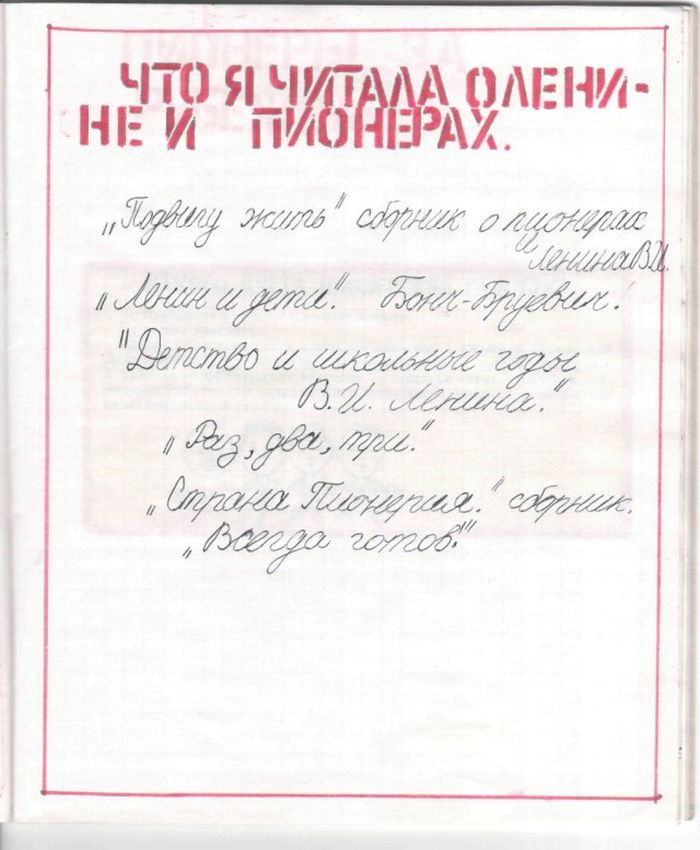 ЧТО Я ЧИТАЛА О ЛЕНИ-
НЕ И ПИОНЕРАХ.
„Подвигу жить" сборник о пионерах
и Ленина В.И.
„Ленин и дети." Бонч-Бруевич.
"Детство и школьные годы
В.И. Ленина."
„Раз, два, три."
„Страна Пионерия." сборник.
„Всегда готов!"